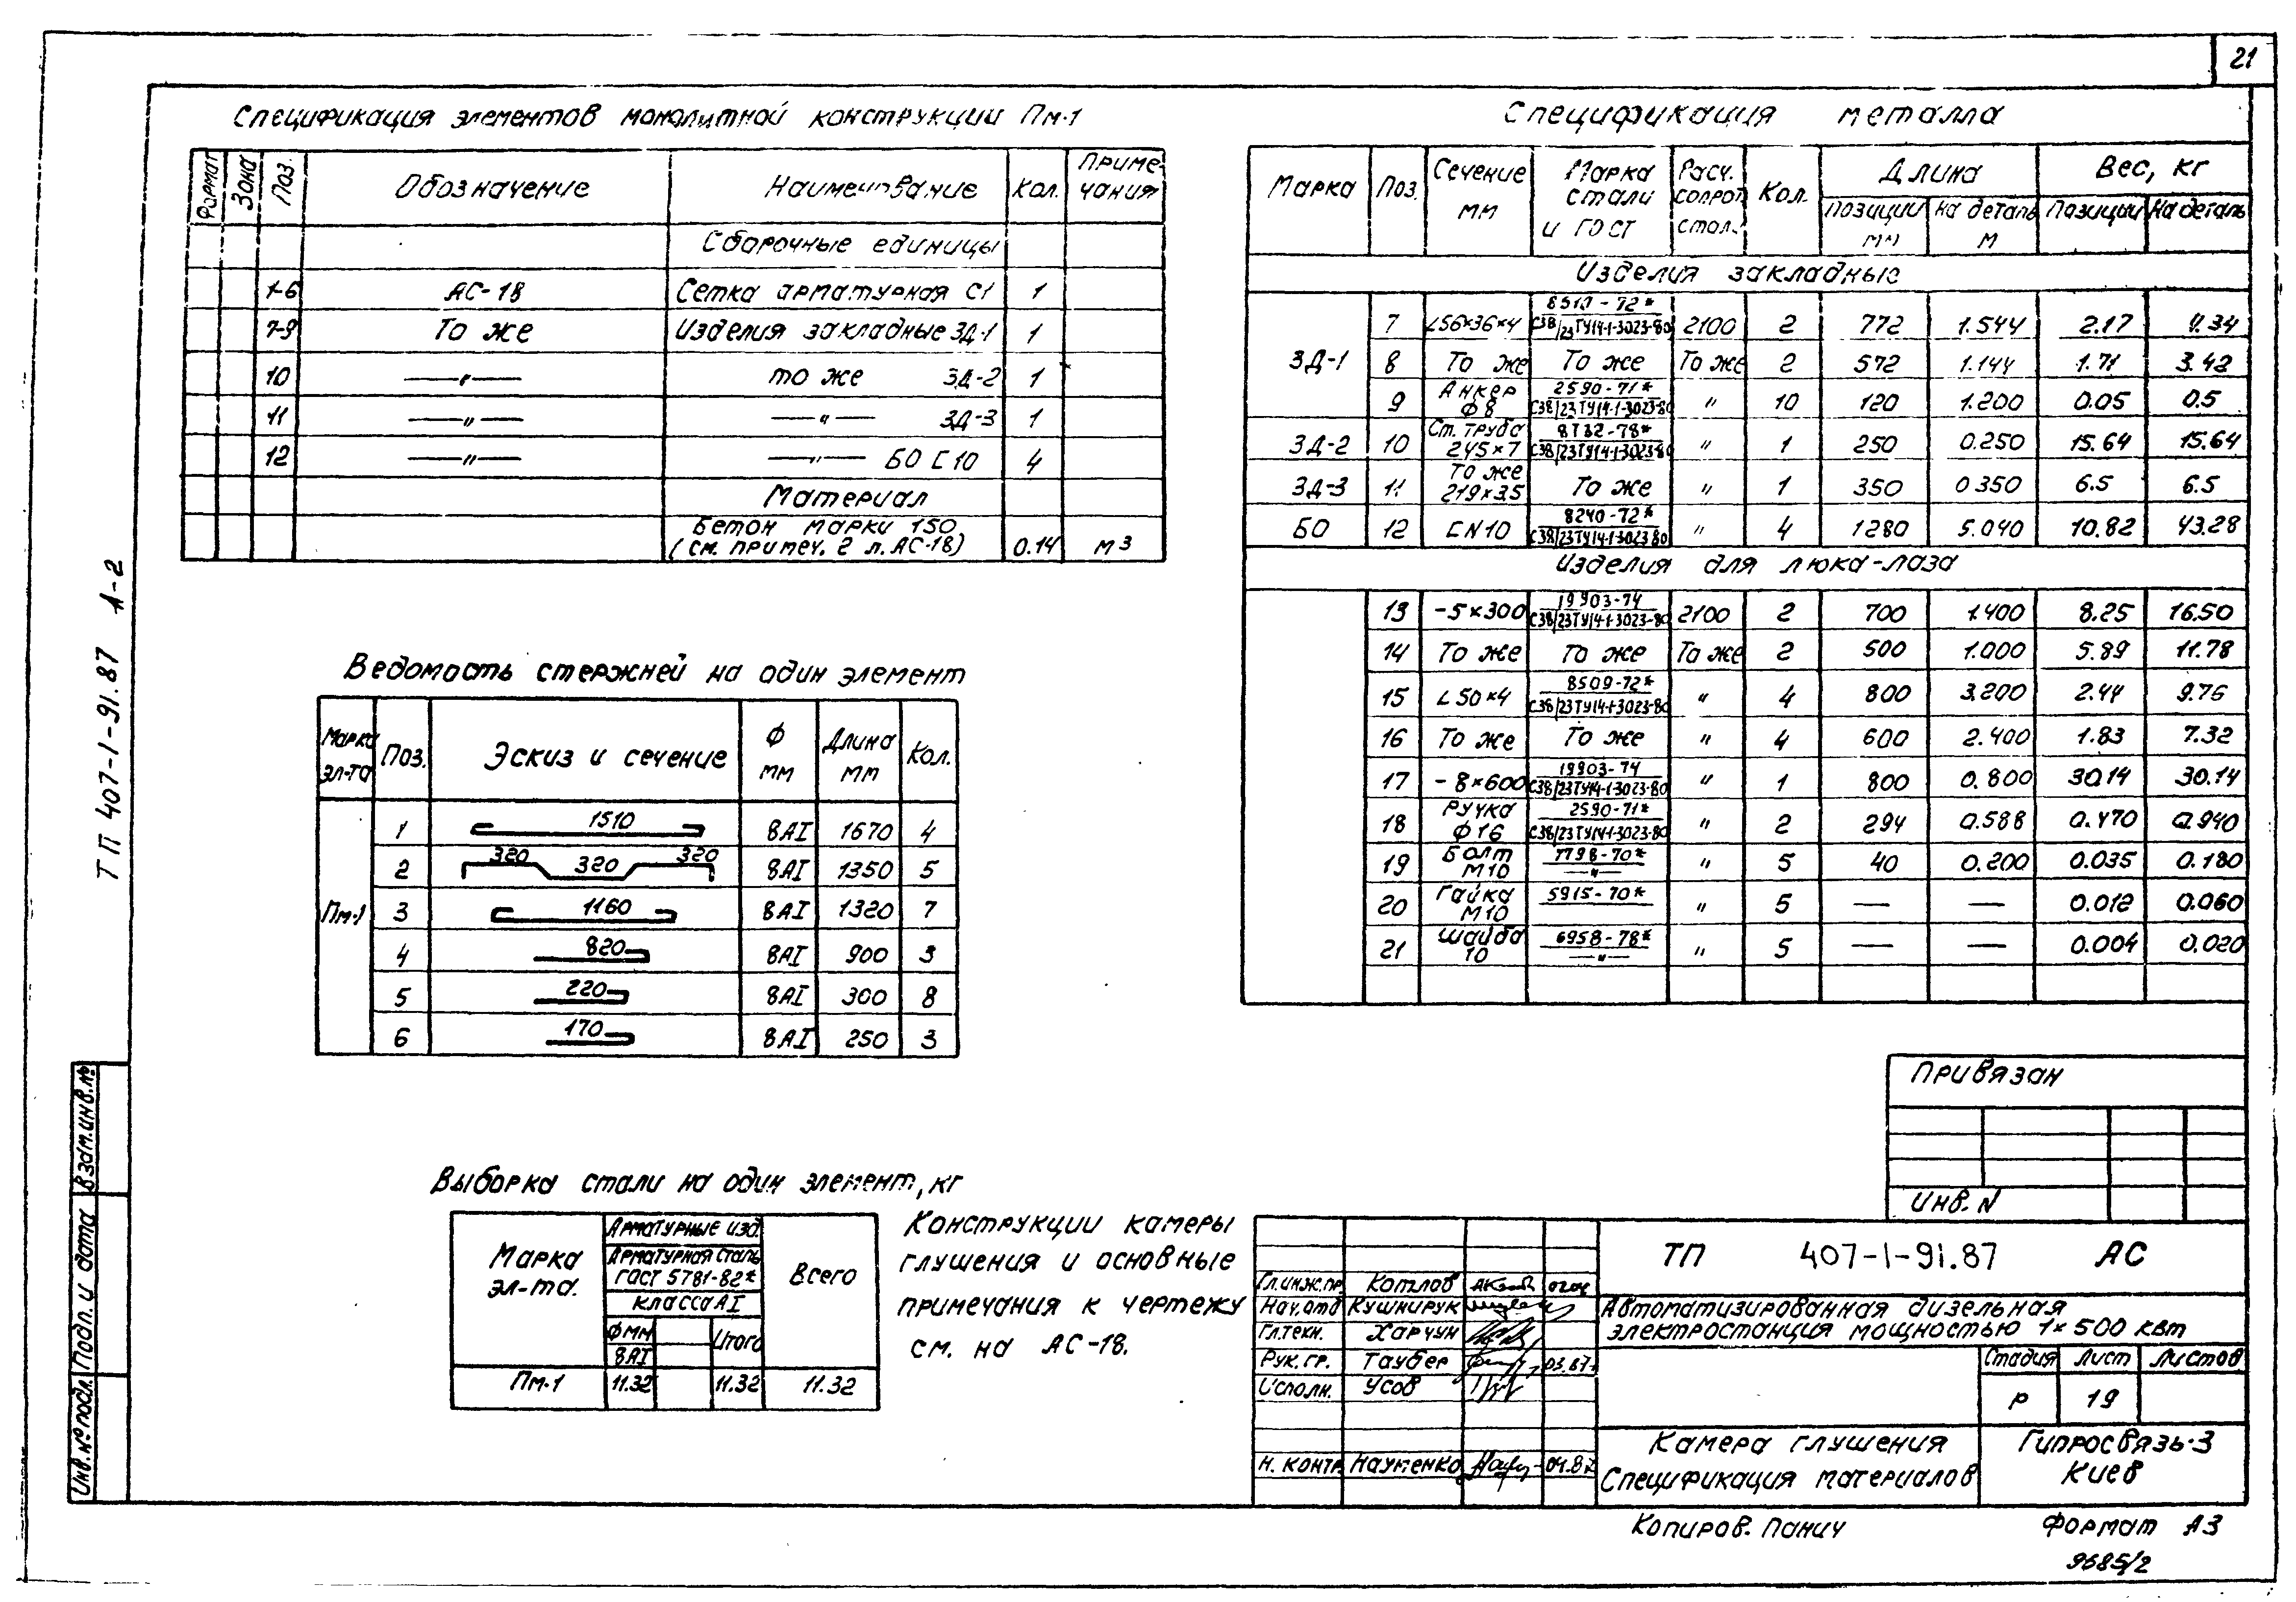 21
Спецификация элементов монолитной конструкции Пм-1
Формат Зона Поз. Обозначение Наименование Кол. Примечания
Сборочные единицы
1-6 АС-18 Сетка арматурная С1 1
7-9 То же Изделия закладные ЗД-1 1
10 —"— то же ЗД-2 1
11 —"— —"— ЗД-3 1
12 —"— —"— БО [10 4
Материал
Бетон марки 150
(см. примеч. 2 л. АС-18) 0.14 м3
Ведомость стержней на один элемент
Марка эл-та Поз. Эскиз и сечение Ф мм Длина мм Кол.
Пм-1
1 1510 8АI 1670 4
2 320 320 320 8АI 1350 5
3 1160 8АI 1320 7
4 820 8АI 900 3
5 220 8АI 300 8
6 170 8АI 250 3
Выборка стали на один элемент, кг
Марка эл-та. Арматурные изд. Всего
Арматурная сталь
ГОСТ 5781-82*
класса АI
Фмм Итого
8АI
Пм-1 11.32 11.32 11.32
Конструкции камеры
глушения и основные
примечания к чертежу
см. на АС-18.
Спецификация металла
Марка Поз. Сечение мм Марка стали и ГОСТ Расч. сопрот. стал. Кол. Длина Вес, кг
позиции мм на деталь м Позиции На деталь
Изделия закладные
ЗД-1 7 L56×36×4 8510-72* С38/23ТУ14-1-3023-80 2100 2 772 1.544 2.17 4.34
8 То же То же То же 2 572 1.144 1.71 3.42
9 Анкер Ф8 2590-71* С38/23ТУ14-1-3023-80 " 10 120 1.200 0.05 0.5
ЗД-2 10 Ст. труба 245×7 8732-78* С38/23ТУ14-1-3023-80 " 1 250 0.250 15.64 15.64
ЗД-3 11 То же 219×3.5 То же " 1 350 0350 6.5 6.5
БО 12 [N10 8240-72* С38/23ТУ14-1-3023 80 " 4 1280 5.040 10.82 43.28
Изделия для люка-лаза
13 -5×300 19903-74 С38/23ТУ14-1-3023-80 2100 2 700 1.400 8.25 16.50
14 То же То же То же 2 500 1.000 5.89 11.78
15 L50×4 8509-72* С38/23ТУ14-1-3023-80 " 4 800 3.200 2.44 9.76
16 То же То же " 4 600 2.400 1.83 7.32
17 -8×600 19903-74 С38/23ТУ14-1-3023-80 " 1 800 0.800 30.14 30.14
18 Ручка Ф16 2590-71* С38/23ТУ14-1-3023-80 " 2 294 0.588 0.470 0.940
19 Болт М10 7798-70* —"— " 5 40 0.200 0.035 0.180
20 Гайка М10 5915-70* " 5 — — 0.012 0.060
21 Шайба 10 6958-78* —"— " 5 — — 0.004 0.020
Привязан
Инв. N
ТП 407-1-91.87 АС
Гл.инж.пр. Котлов
Нач.отд Кушнирук
Гл.техн. Харчун
Рук.гр. Таубер 03.87г
Исполн. Усов
Н. контр Науменко 04.87
Автоматизированная дизельная
электростанция мощностью 1×500 квт
Стадия Лист Листов
Р 19
Камера глушения
Спецификация материалов
Гипросвязь-3
Киев
Копиров. Панич
Формат А3
9685/2
ТП 407-1-91.87 А-2
Взам.инв.№
Подп. и дата
Инв.№подл.